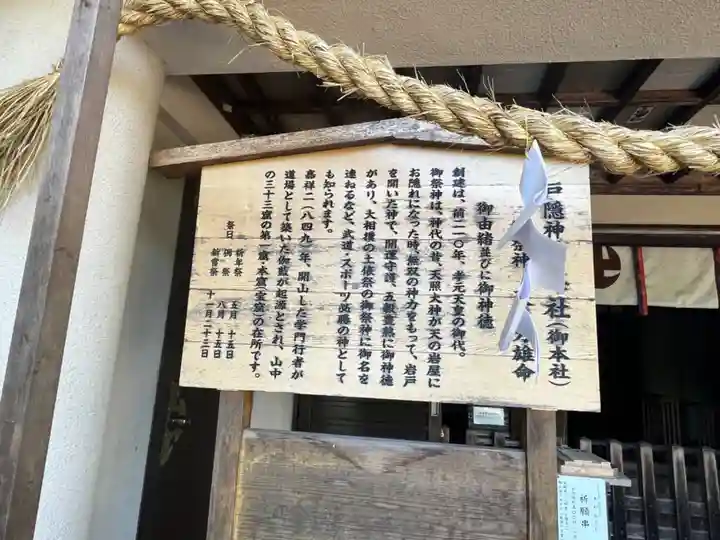 戸隠神 社(御本社)
祭神 雄命
御由緒並びに御神徳
創建は、前二一〇年、孝元天皇の御代。
御祭神は、神代の昔、天照大神が天の岩屋に
お隠れになった時、無双の神力をもって、岩戸
を開いた神で、開運守護、五穀豊熟に御神徳
があり、大相撲の土俵祭の御祭神に御名を
連ねるなど、武道・スポーツ必勝の神として
も知られます。
嘉祥二(八四九)年、開山した学門行者が
道場として築いた伽藍が起源とされ、山中
の三十三窟の第一窟「本窟・宝窟」の在所です。
祭日 祈年祭 五月 十五日
例祭 八月 十五日
新嘗祭 十一月二十三日
祈願串